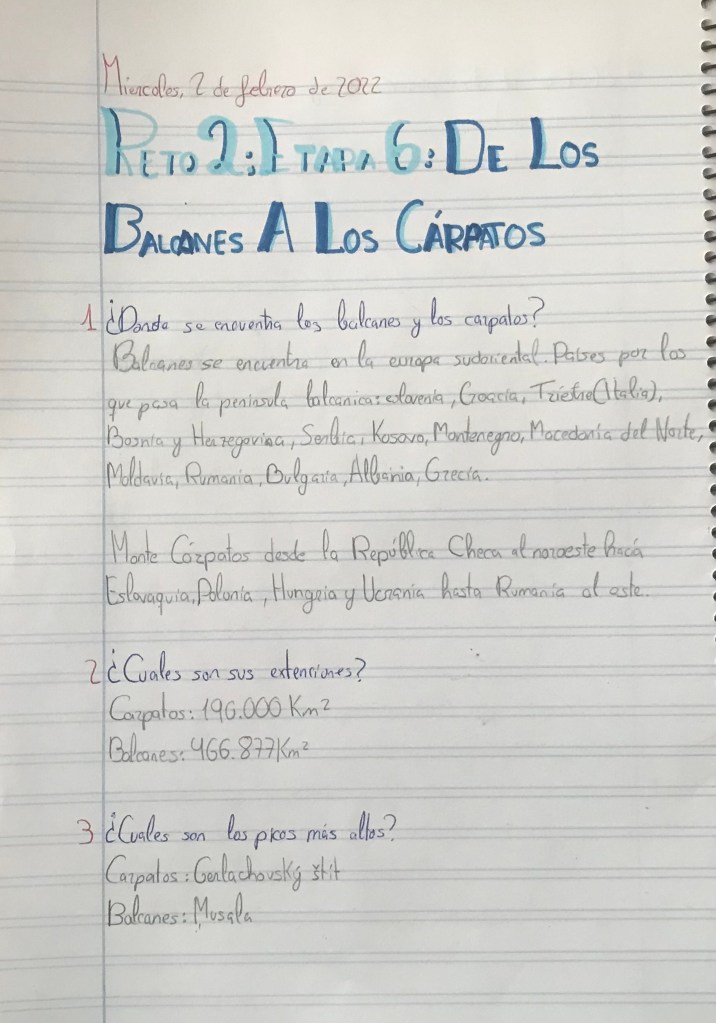 Miercoles, 2 de febrero de 2022
RETO 2: ETAPA 6: DE LOS
BALCANES A LOS CÁRPATOS
1 ¿Donde se encuentra los balcanes y los carpatos?
Balcanes se encuentra en la europa sudoriental. Países por los
que pasa la peninsula balcanica: eslovenia, Croacia, Trieste (Italia),
Bosnia y Herzegovina, Serbia, Kosovo, Montenegro, Macedonia del Norte,
Moldavia, Rumania, Bulgaria, Albania, Grecia.
Monte Cárpatos desde la República Checa al noroeste hacá
Eslovaquia, Polonia, Hungria y Ucrania hasta Rumania al este.
2 ¿Cuales son sus extenciones?
Carpatos: 196.000 Km²
Balcanes: 466.877Km²
3 ¿Cuales son los picos más altos?
Carpatos: Gerlachovský štít
Balcanes: Musala